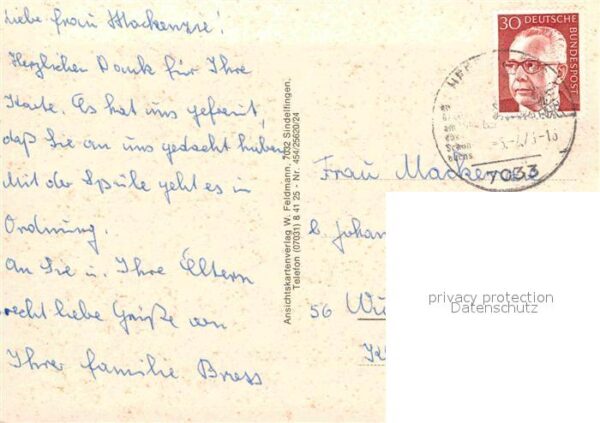 Liebe Frau Mackenzie!
Herzlichen Dank für Ihre
Karte. Es hat uns gefreut,
daß Sie an uns gedacht haben
Mit der Spüle geht es in
Ordnung.
An Sie u. Ihre Eltern
recht liebe Grüße von
Ihrer Familie Bress
Ansichtskartenverlag W. Feldmann, 7032 Sindelfingen,
Telefon (07031) 8 41 25 - Nr. 454/25620/24
30 DEUTSCHE
BUNDESPOST
7033
Frau Mackenzie
b. Johan
56 Wu
privacy protection
Datenschutz